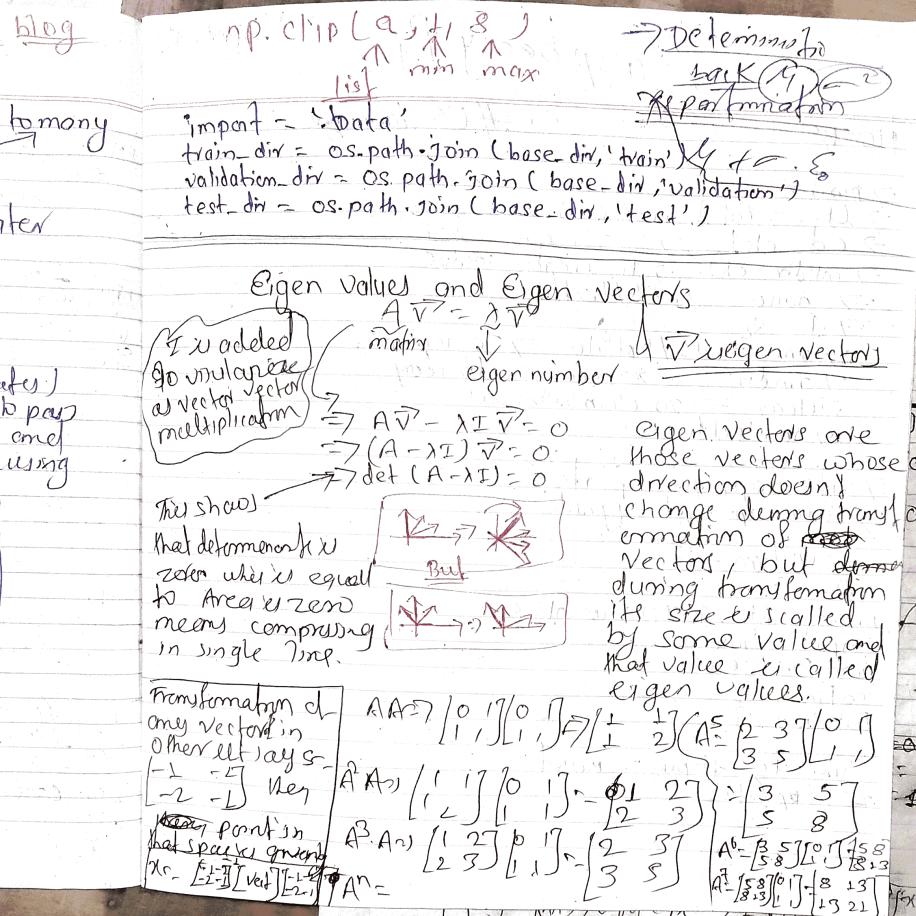 blog
tomany
nter
to pass
and
using
np.clip(a, 1, 8)
list min max
back
import = './data'
train_dir = os.path.join(base_dir,'train')
validation_dir = os.path.join(base_dir,'validation')
test_dir = os.path.join(base_dir,'test')
Eigen values and Eigen vectors
A v⃗ = λ v⃗
matrix
eigen number
v⃗ is eigen vectors
I is added
as vector vector
multiplication
⇒ A v⃗ − λ I v⃗ = 0
⇒ (A − λI) v⃗ = 0
⇒ det (A − λI) = 0
This shows
that determenant is
zero which is equal
to Area is zero
means compressing
in single line.
But
Eigen vectors are
those vectors whose
direction doesn't
change during transf
ormation of
vectors, but
during transformation
its size is scalled
by some value and
that value is called
eigen values.
Transformation of
any vector in
other
[-1 -2
-2 -1] then
point in
that space is given
AA ⇒ [0 1
1 1] [0 1
1 1] ⇒ [1 1
1 2]
A²A ⇒ [1 1
1 2] [0 1
1 1] = [1 2
2 3]
A³A ⇒ [1 2
2 3] [0 1
1 1] = [2 3
3 5]
Aⁿ =
A⁵ = [2 3
3 5] [0 1
1 1]
= [3 5
5 8]
A⁶ = [3 5
5 8] [0 1
1 1] = [5 8
8 13]
A⁷ = [5 8
8 13] [0 1
1 1] = [8 13
13 21]